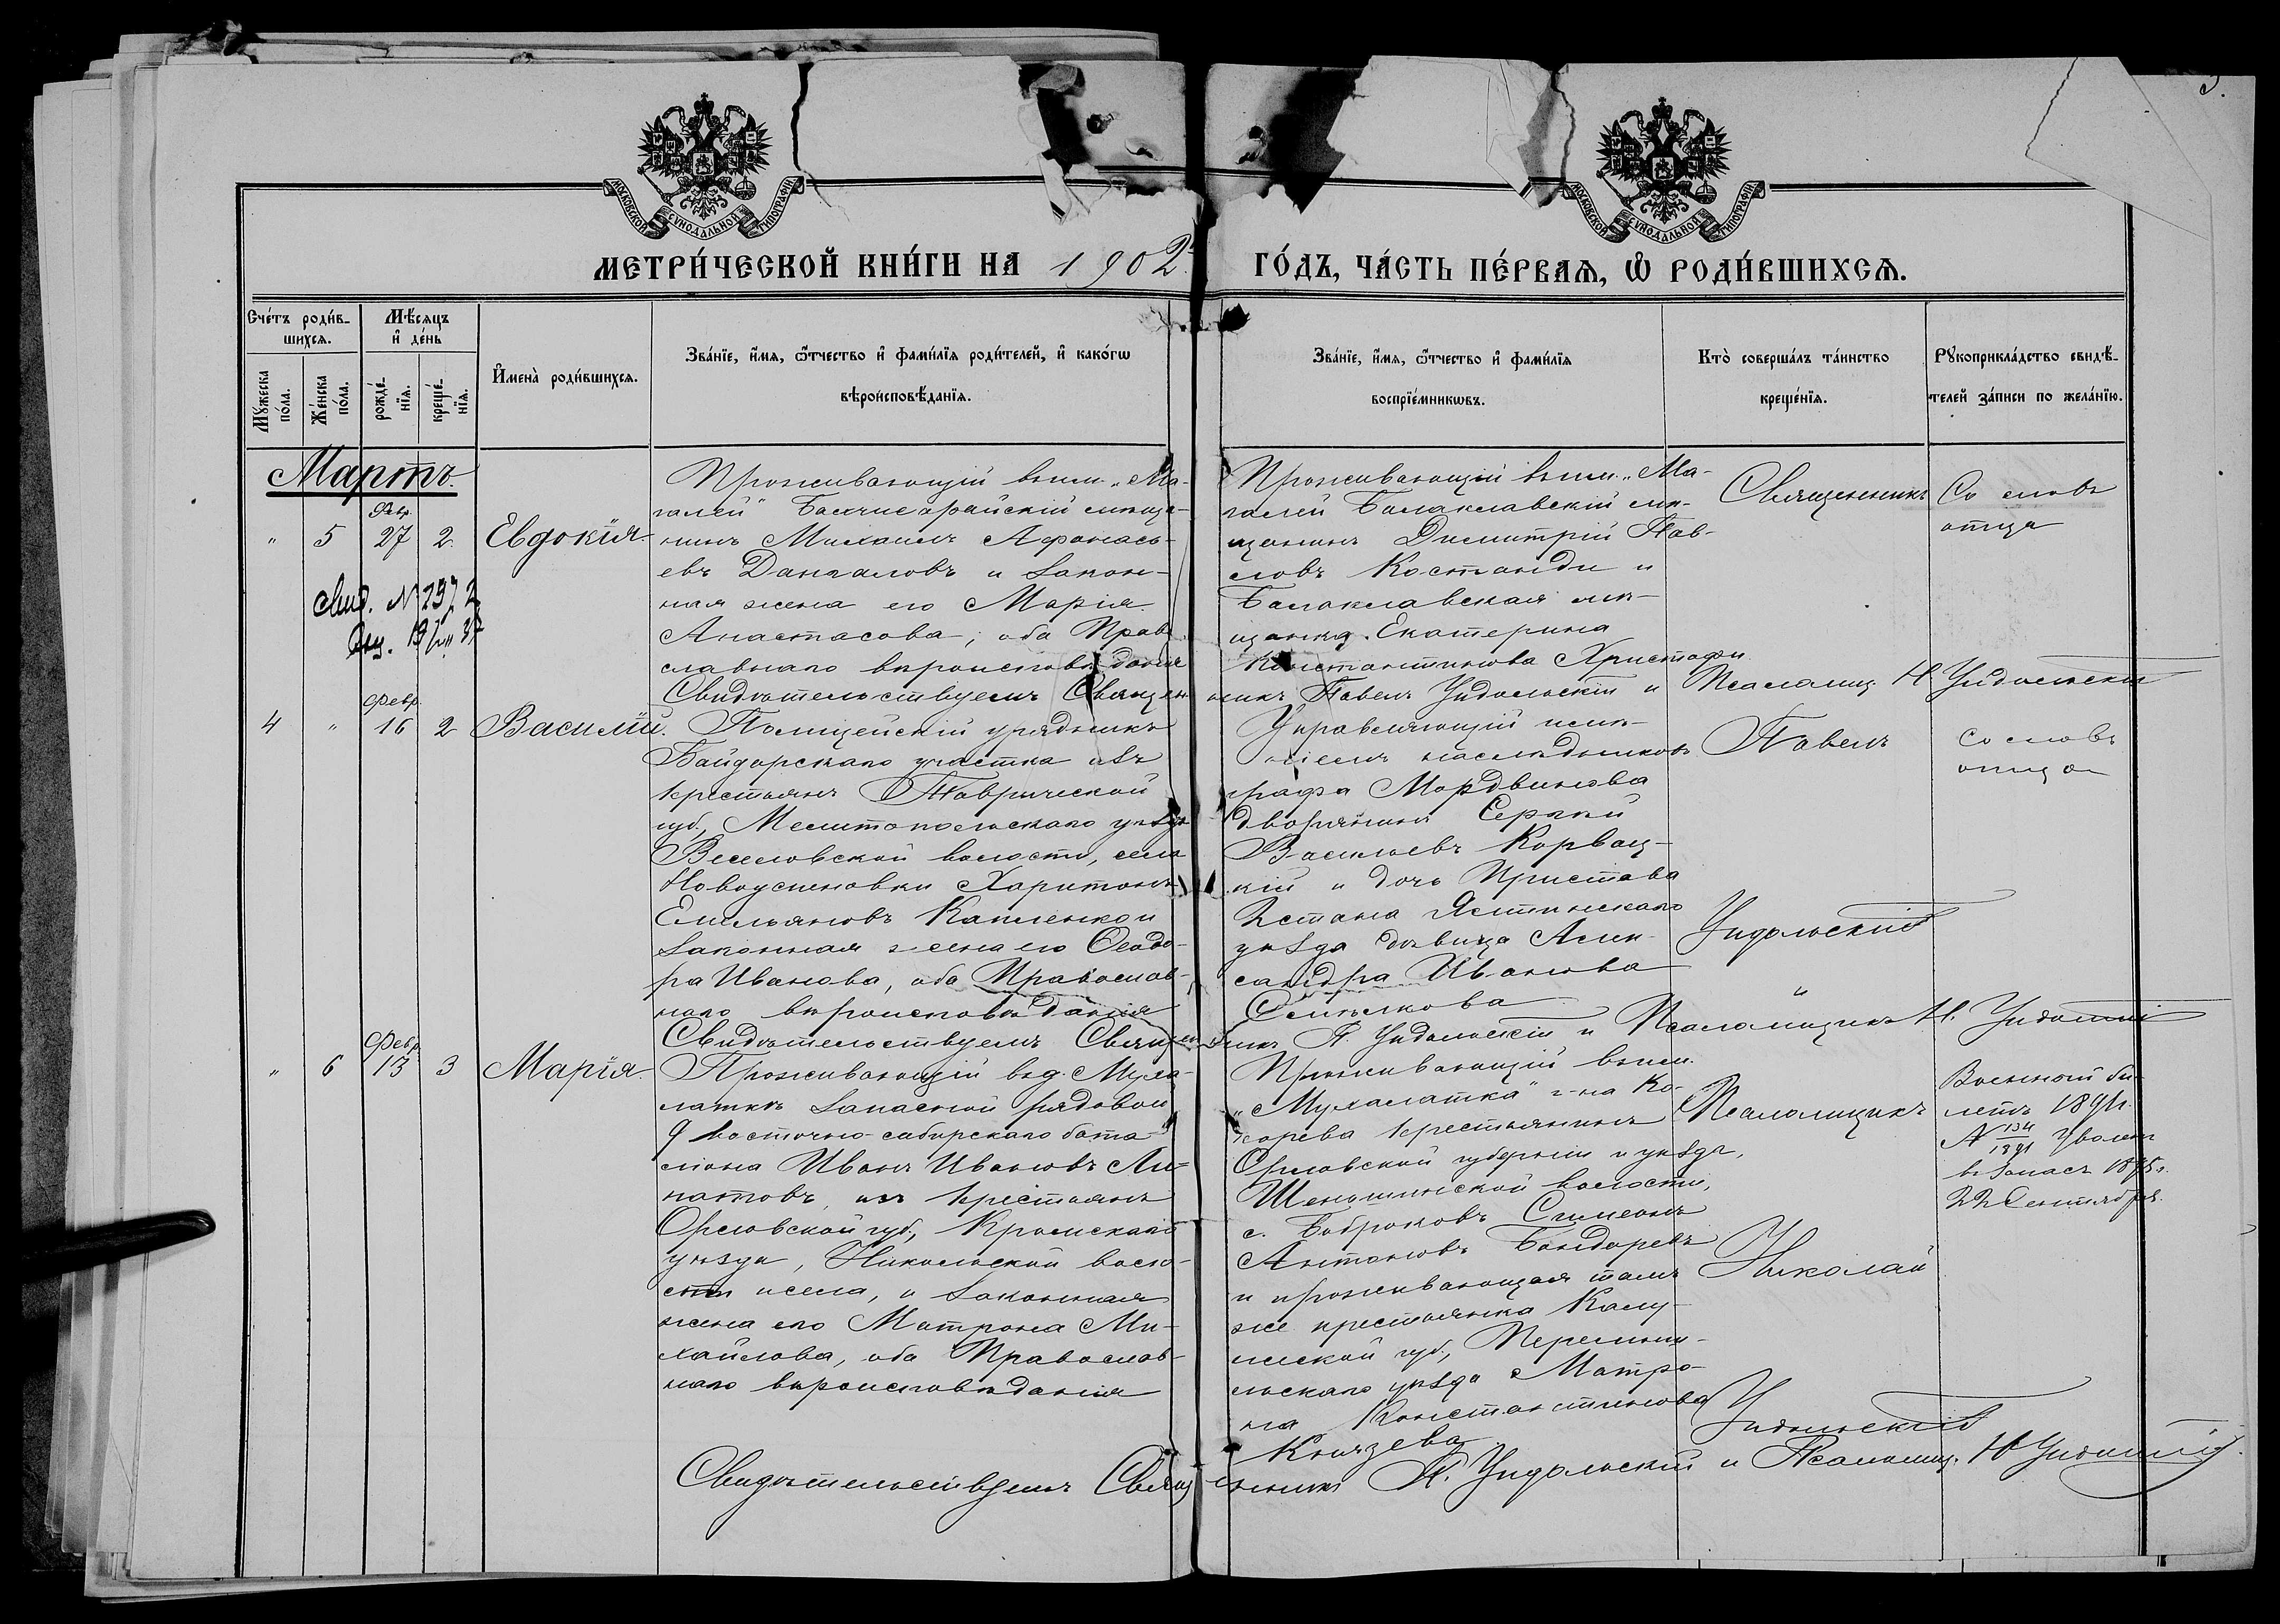 МОСКОВСКОЙ СѴНОДАЛЬНОЙ ТИПОГРАФІИ
МОСКОВСКОЙ СѴНОДАЛЬНОЙ ТИПОГРАФІИ
МЕТРИ́ЧЕСКОЙ КНИ́ГИ НА 1902
ГО́ДЪ, ЧА́СТЬ ПЕ́РВАѦ, Ѡ҆ РОДИ́ВШИХСѦ.
Сче́тъ роди́в-
шихсѧ.
Мѣ́сяцъ
и҆ де́нь
Мꙋ́жеска
по́ла.
Же́нска
по́ла.
рожде́-
нїѧ.
креще́-
нїѧ.
И҆мена̀ роди́вшихсѧ.
Зва́нїе, и҆́мѧ, ѻ҆́тчество и҆ фами́лїѧ роди́телей, и҆ како́гѡ
вѣроисповѣ́данїѧ.
Зва́нїе, и҆́мѧ, ѻ҆́тчество и҆ фами́лїѧ
воспрїе́мникѡвъ.
Кто̀ соверша́лъ та́инство
креще́нїѧ.
Рꙋкоприкла́дство свидѣ́-
телей за́писи по жела́нїю.
Мартъ.
Февр.
" 5 27 2. Евдокія.
Свид. № 2972
Проживающій въ им. „Ма-
галей" Бахчисарайскій мѣща-
нинъ Михаилъ Афонась-
евъ Дангаловъ и закон-
ная жена его Марія
Анастасова, оба Право-
славнаго вѣроисповѣданія
Проживающій въ им. „Ма-
галей Балаклавскій мѣ-
щанинъ Димитрій Пав-
ловъ Костанди и
Балаклавская мѣ-
щанка Екатерина
Константинова Христофи
Священникъ
Со словъ
отца
Свидѣтельствуемъ Священникъ Павелъ Ундольскій и Псаломщ. Н. Ундольскій
Февр.
4 " 16 2 Василій.
Полицейскій урядникъ
Байдарскаго участка изъ
крестьянъ Таврической
губ., Мелитопольскаго уѣзда
Веселовской волости, села
Новоуспеновки Харитонъ
Емельяновъ
законная жена его Ѳеодо-
ра Иванова, оба Православ-
наго вѣроисповѣданія
Управляющій имѣ-
ніемъ наслѣдниковъ
графа Мордвинова
дворянинъ Сергѣй
Васильевъ Корвац-
кій и дочь Пристава
2 стана Ялтинскаго
уѣзда дѣвица Алек-
сандра Иванова
Павелъ
Ундольскій
Со словъ
отца
Свидѣтельствуемъ Священникъ П. Ундольскій и Псаломщикъ Н. Ундольскій
Февр.
" 6 13 3 Марія.
Проживающій въ д. Муха-
латкѣ запасной рядовой
9 восточно-сибирскаго бата
ліона Иванъ Ивановъ Ли-
патовъ, изъ крестьянъ
Орловской губ., Кромскаго
уѣзда, Никольской воло-
сти и села, и законная
жена его Матрона Ми-
хайлова, оба Православ-
наго вѣроисповѣданія
Проживающій въ им.
„Мухалатка" г-на Ко-
корева крестьянинъ
Орловской губерніи и уѣзда,
волости,
с. Симеонъ
Антоновъ Бондаревъ
и проживающая тамъ
же крестьянка Калу-
жской губ., Перемыш-
льскаго уѣзда Матро-
на Константинова
Князева
Псаломщикъ
Николай
Ундольскій
Военный би-
летъ 1891 г.
№ уволен
въ запасъ
22 Сентября.
Свидѣтельствуемъ Священникъ П. Ундольскій и Псаломщ. Н Ундольскій